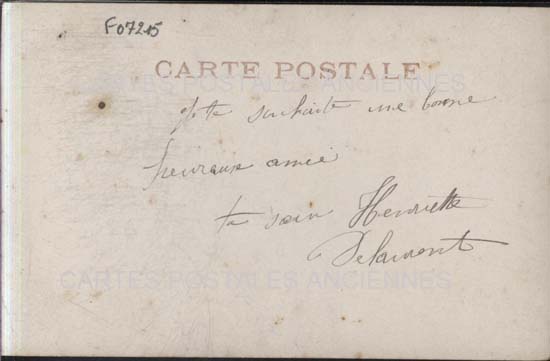 F07215
CARTE POSTALE
CARTES POSTALES ANCIENNES
Je te souhaite une bonne
heureuse année
ta sœur Henriette
Delamont
CARTES POSTALES ANCIENNES